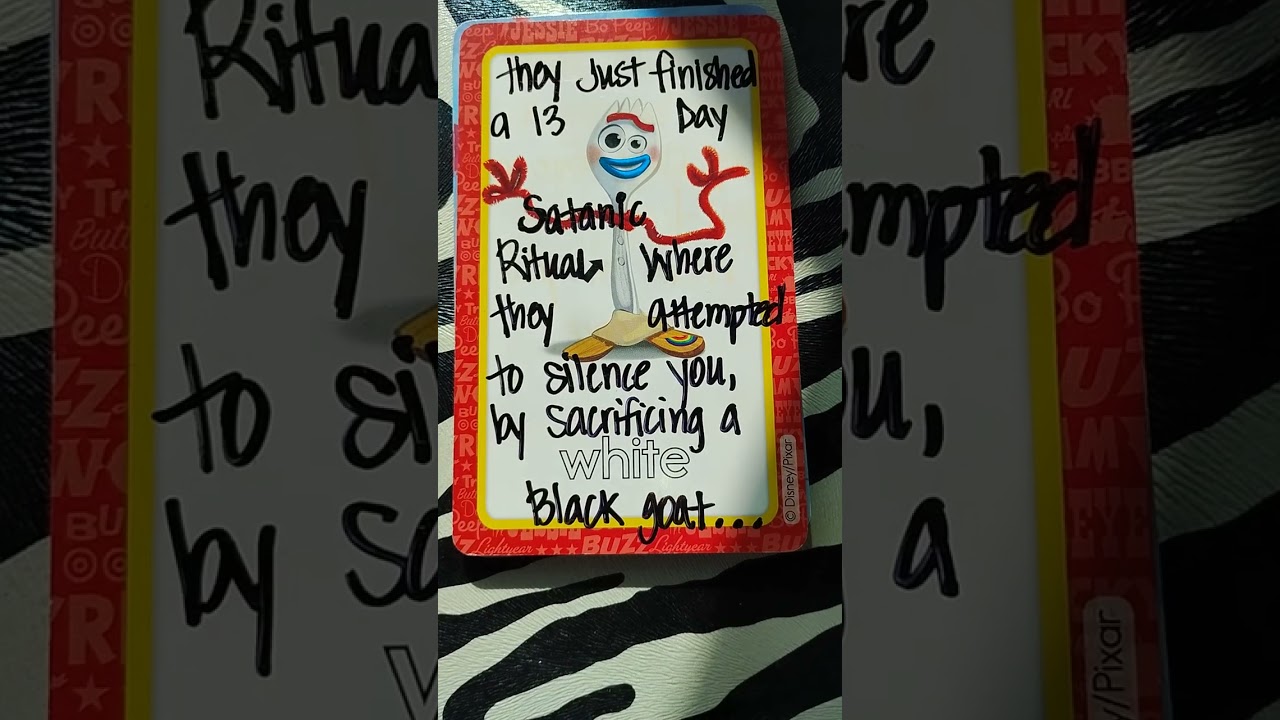 they Just finished
a 13 Day
Satanic
Ritual Where
they attempted
to silence you,
by sacrificing a
white
Black goat...
© Disney/Pixar
JESSIE Bo Peep
Lightyear ★★★ BUZZ Lightyear ★★★